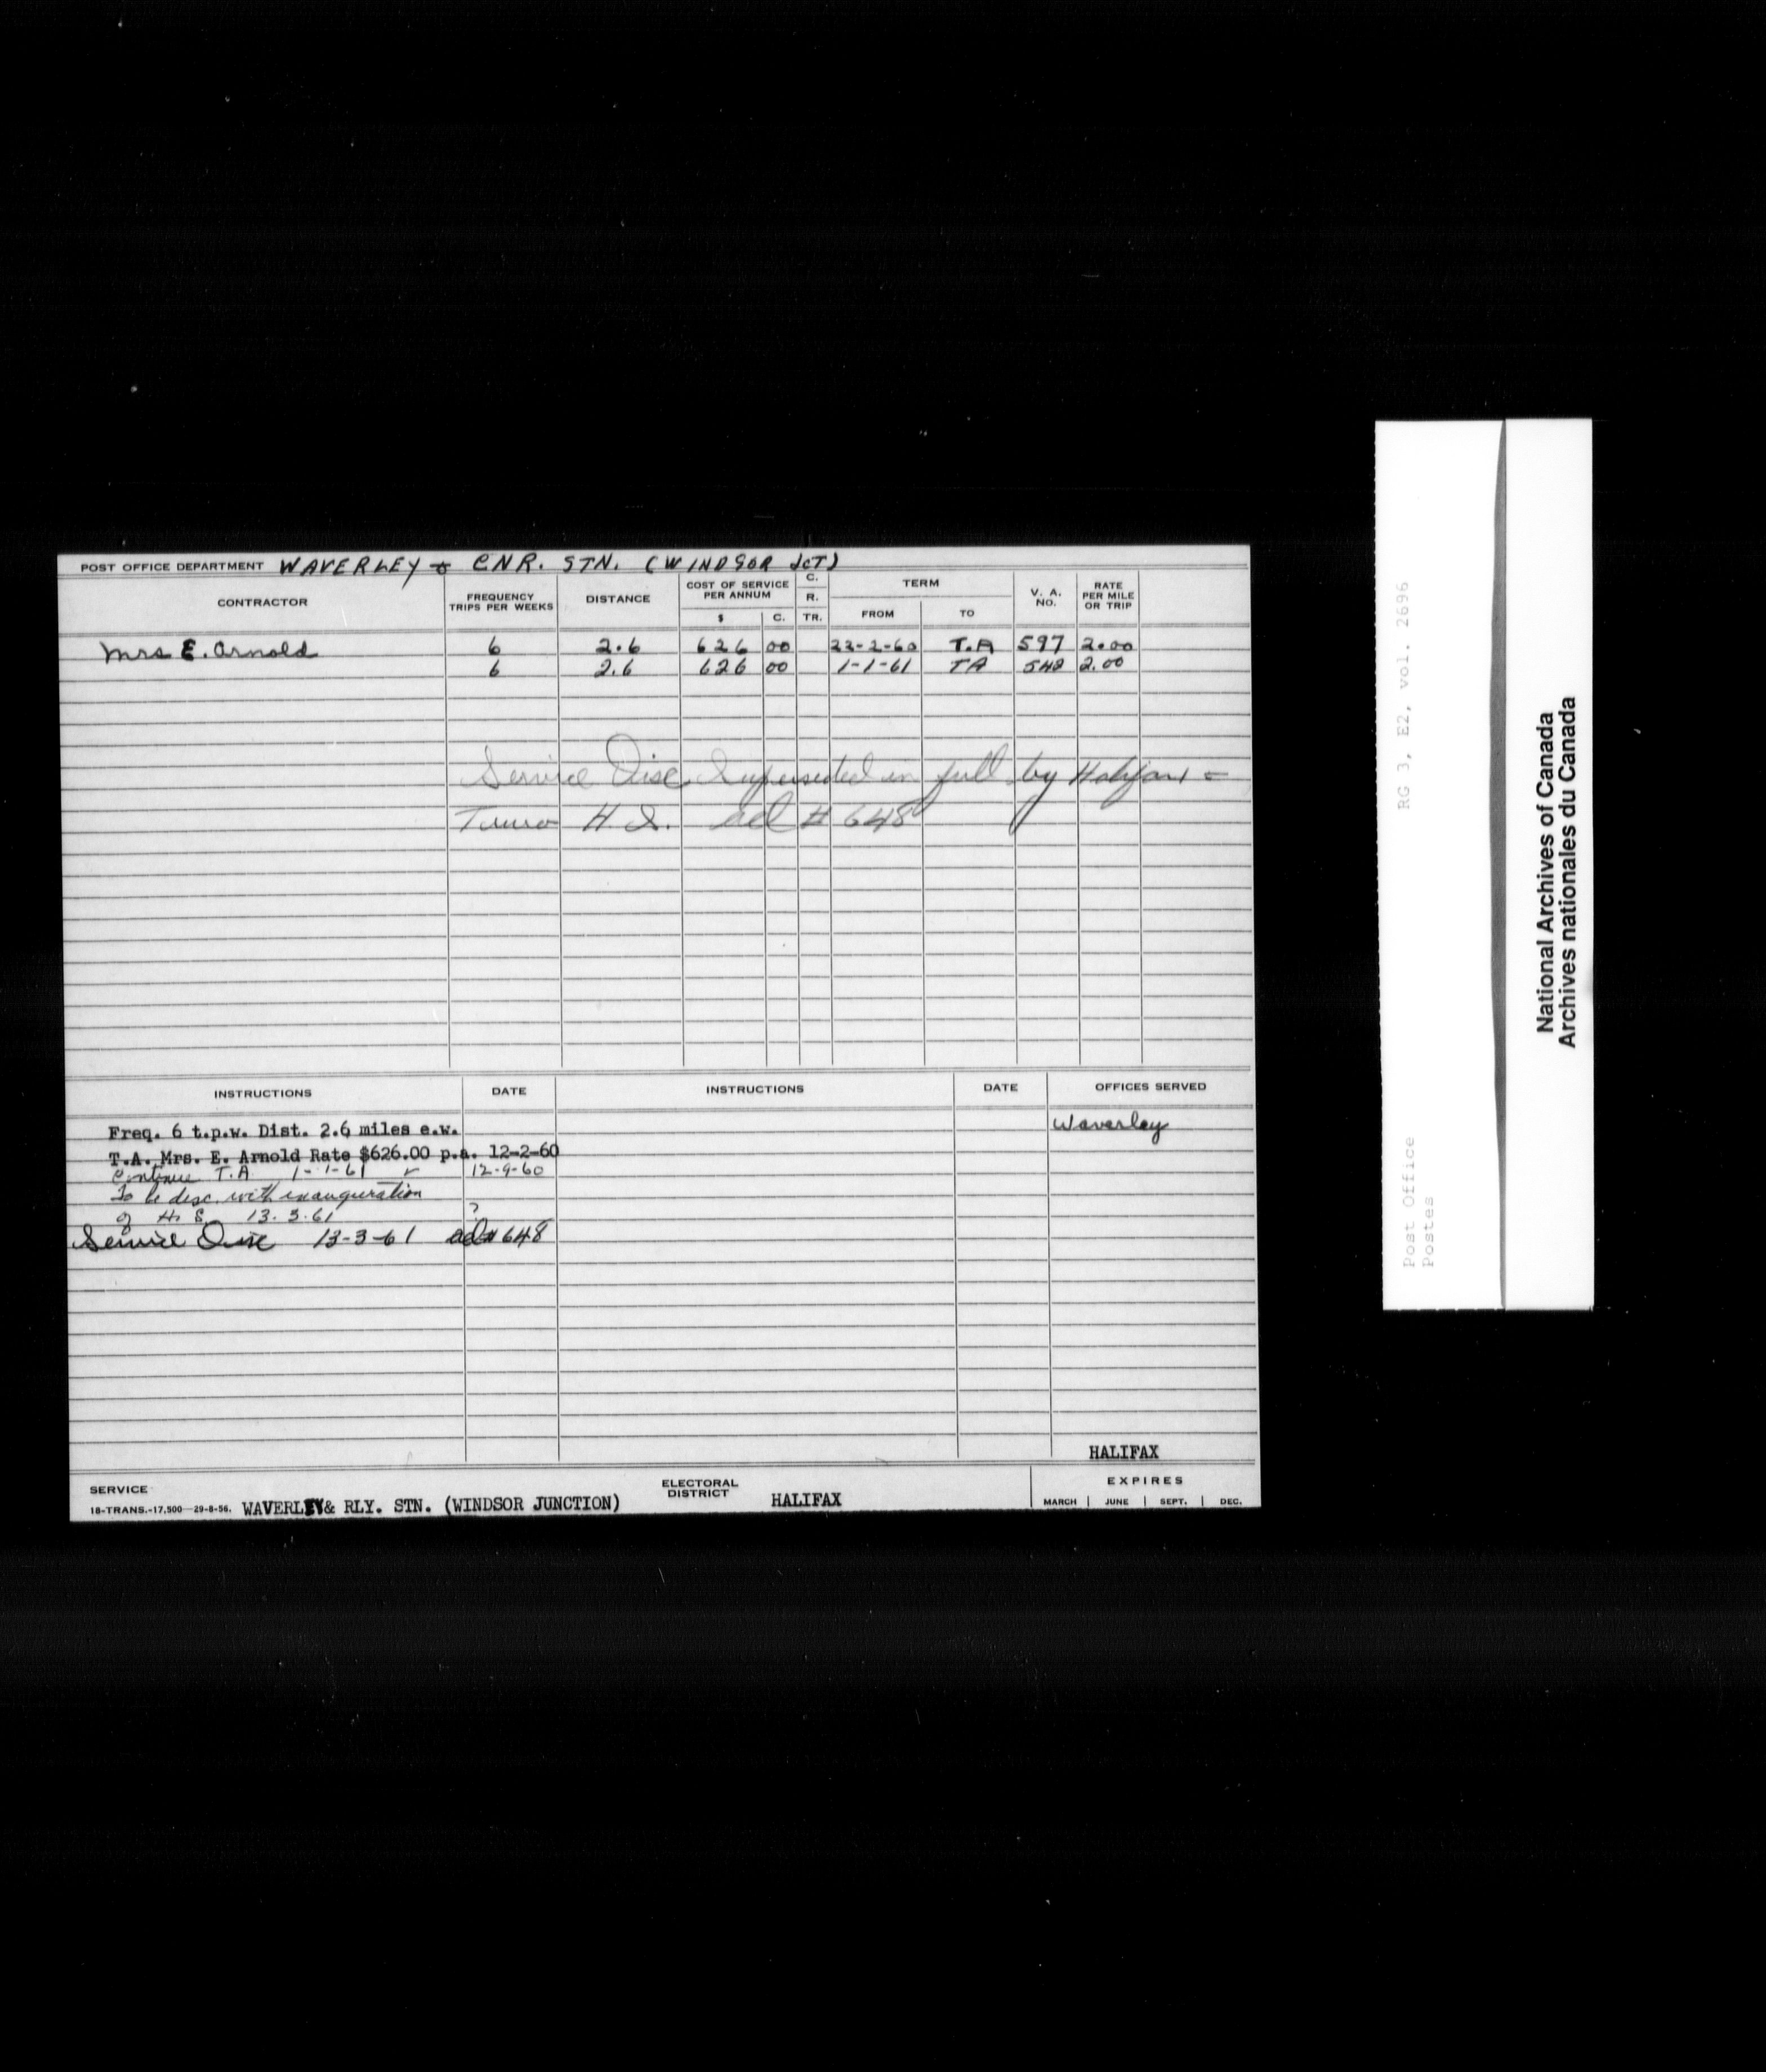 POST OFFICE DEPARTMENT WAVERLEY & CNR. STN. (WINDSOR JCT)
CONTRACTOR FREQUENCY TRIPS PER WEEKS DISTANCE COST OF SERVICE PER ANNUM $ C. C. R. TR. TERM FROM TO V. A. NO. RATE PER MILE OR TRIP
Mrs E. Arnold 6 2.6 626 00 22-2-60 T.A 597 2.00
6 2.6 626 00 1-1-61 TA 548 2.00
Service Disc Superseded in full by Halifax =
Truro H.S. ad # 648
INSTRUCTIONS DATE INSTRUCTIONS DATE OFFICES SERVED
Waverley
Freq. 6 t.p.w. Dist. 2.6 miles e.w.
T.A. Mrs. E. Arnold Rate $626.00 p.a. 12-2-60
Continue T.A 1-1-61 ✓ 12-9-60
To be disc. with inauguration
of H. S. 13.3.61 ?
Service Disc 13-3-61 ad # 648
HALIFAX
SERVICE
18-TRANS.-17,500—29-8-56. WAVERLEY& RLY. STN. (WINDSOR JUNCTION)
ELECTORAL DISTRICT HALIFAX
EXPIRES
MARCH | JUNE | SEPT. | DEC.
RG 3, E2, vol. 2696
Post Office
Postes
National Archives of Canada
Archives nationales du Canada